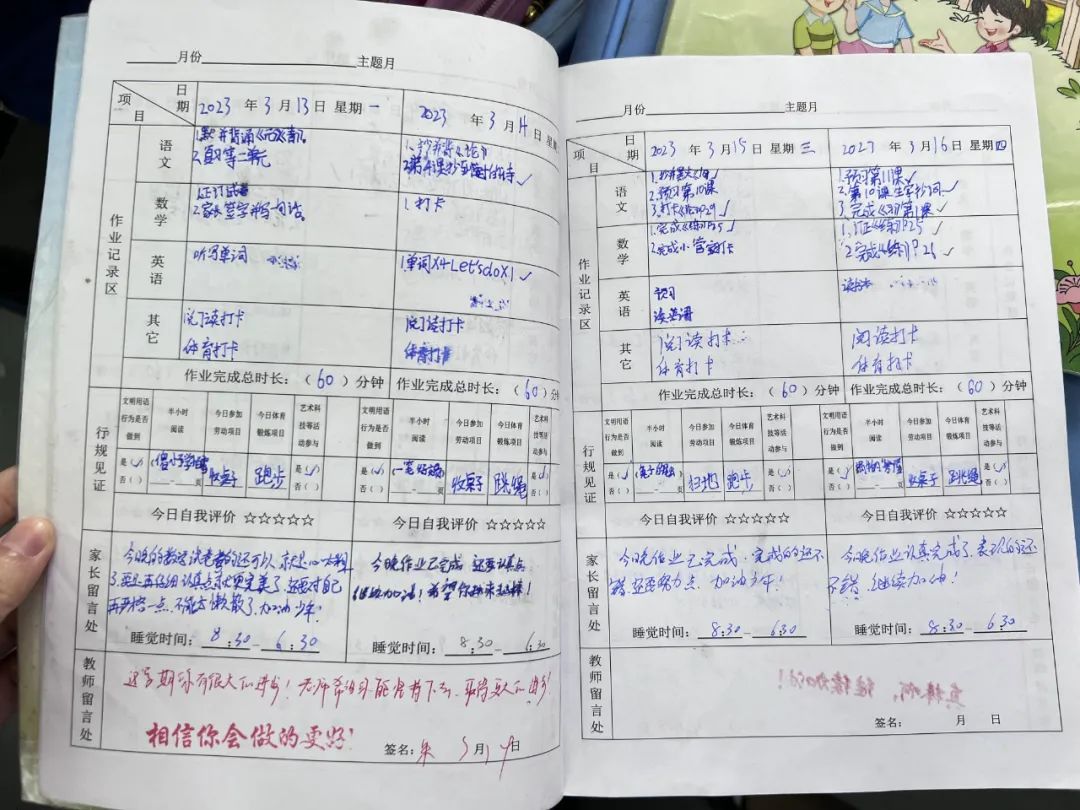 月份 主题月
项目 日期 2023年3月13日 星期一 2023年3月14日 星期
作业记录区
语文
2.复习第二单元
数学
1.订正试卷
2.家长签字并写一句话
1.打卡
英语
听写单词
1.单词X4 Let's do X1 ✓
其它
阅读打卡
体育打卡
阅读打卡
体育打卡
作业完成总时长:(60)分钟 作业完成总时长:(60)分钟
行规见证
文明用语行为是否做到 半小时阅读 今日参加劳动项目 今日体育锻炼项目 艺术科技等活动参与
文明用语行为是否做到 半小时阅读 今日参加劳动项目 今日体育锻炼项目 艺术科技等活动参与
是(✓) 否( ) 收桌子 跑步 是(✓) 否( )
是(✓) 否( ) 收桌子 跳绳 是(✓) 否( )
今日自我评价 ☆☆☆☆☆ 今日自我评价 ☆☆☆☆☆
家长留言处
今晚的数学试卷做的还可以,就是
了,要是再仔细认真点就更完美了,还要对自己
再严格一点,不能太懒散了,加油少年!
睡觉时间:8:30-6:30
今晚作业已完成,还要认真点
继续加油!希望你越来越棒!
睡觉时间:8:30-6:30
教师留言处
这学期你有很大的进步!老师希望你能坚持下去,取得更大的进步!
相信你会做的更好!
签名:朱 3月14日
月份 主题月
项目 日期 2023年3月15日 星期三 2023年3月16日 星期四
作业记录区
语文
2.预习第10课
3.打卡 P29 ✓
1.预习第11课 ✓
2.第10课生字抄词 ✓
3.完成《习》第1课 ✓
数学
1.完成《练》P25 ✓
2.完成小 打卡
1.订正《练》P25 ✓
2.完成《练》P26 ✓
英语
预习
读英语
读书本
其它
阅读打卡
体育打卡
阅读打卡
体育打卡
作业完成总时长:(60)分钟 作业完成总时长:(60)分钟
行规见证
文明用语行为是否做到 半小时阅读 今日参加劳动项目 今日体育锻炼项目 艺术科技等活动参与
文明用语行为是否做到 半小时阅读 今日参加劳动项目 今日体育锻炼项目 艺术科技等活动参与
是(✓) 否( ) 扫地 跑步 是(✓) 否( )
是(✓) 否( ) 收桌子 跳绳 是(✓) 否( )
今日自我评价 ☆☆☆☆☆ 今日自我评价 ☆☆☆☆☆
家长留言处
今晚作业已完成,完成的还不
错,还要努力点,加油少年!
睡觉时间:8:30-6:30
今晚作业认真完成了,表现的还
不错,继续加油!
睡觉时间:8:30-6:30
教师留言处
签名: 月 日